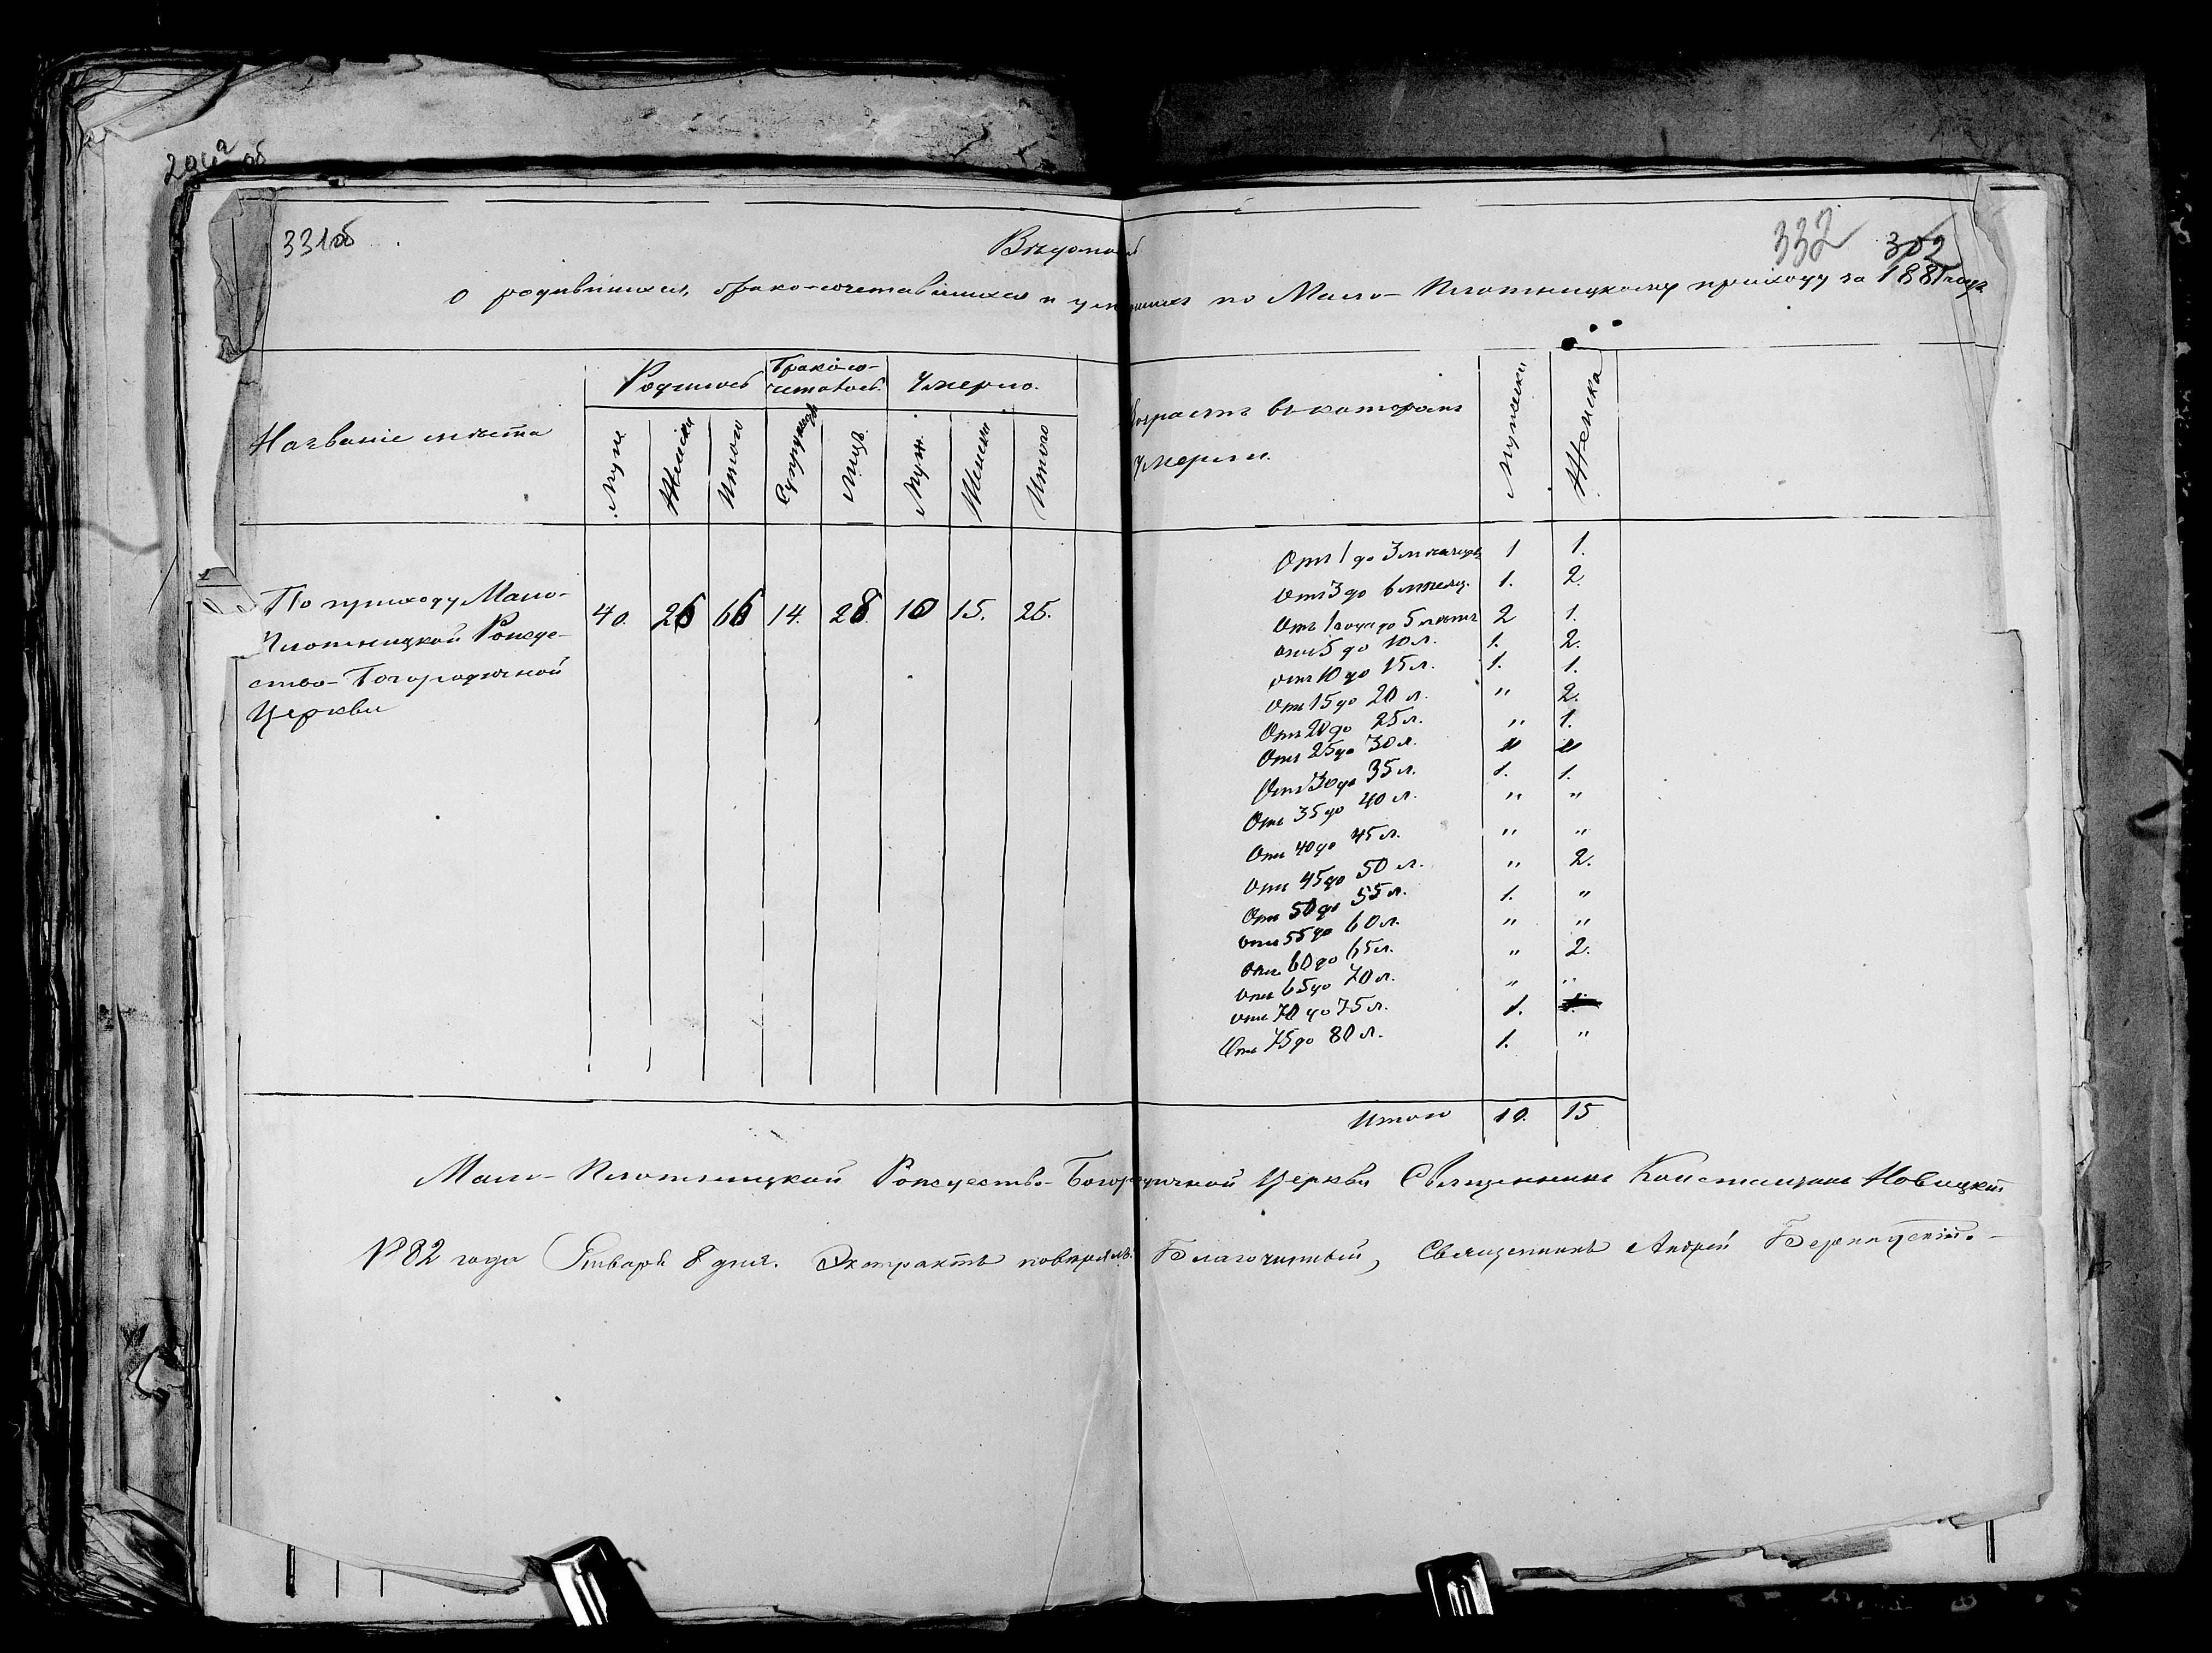 331об
332 302
Вѣдомость
о родившихся, брако-сочетавшихся и умершихъ по Мало-Плотницкому приходу за 1881 годъ
Названіе мѣста
Родилось
Бракосо-
четалось
Умерло.
Муж.
Женска
Итого
Супружеств
Лицъ.
Муж.
Женска
Итого
По приходу Мало-
Плотницкой Рожде-
ство-Богородичной
Церкви
40. 26 66 14. 28. 10 15. 25.
Возрастъ въ которомъ
умерли.
Мужеска
Женска
Отъ 1 до 3 мѣсяцевъ 1 1.
Отъ 3 до 6 мѣсяц. 1. 2.
Отъ 1 года до 5 лѣтъ 2 1.
отъ 5 до 10 л. 1. 2.
отъ 10 до 15 л. 1. 1.
Отъ 15 до 20 л. " 2.
Отъ 20 до 25 л. " 1.
Отъ 25 до 30 л. " "
Отъ 30 до 35 л. 1. 1.
Отъ 35 до 40 л. " "
Отъ 40 до 45 л. " "
Отъ 45 до 50 л. " 2.
Отъ 50 до 55 л. 1. "
отъ 55 до 60 л. " "
отъ 60 до 65 л. " 2.
отъ 65 до 70 л. " "
отъ 70 до 75 л. 1.
Отъ 75 до 80 л. 1. "
Итого 10. 15
Мало-Плотницкой Рождество-Богородичной Церкви Священникъ Константинъ Новицкій
1882 года Январь 8 дня. Экстрактъ повѣрялъ: Благочинный, Священникъ Андрей